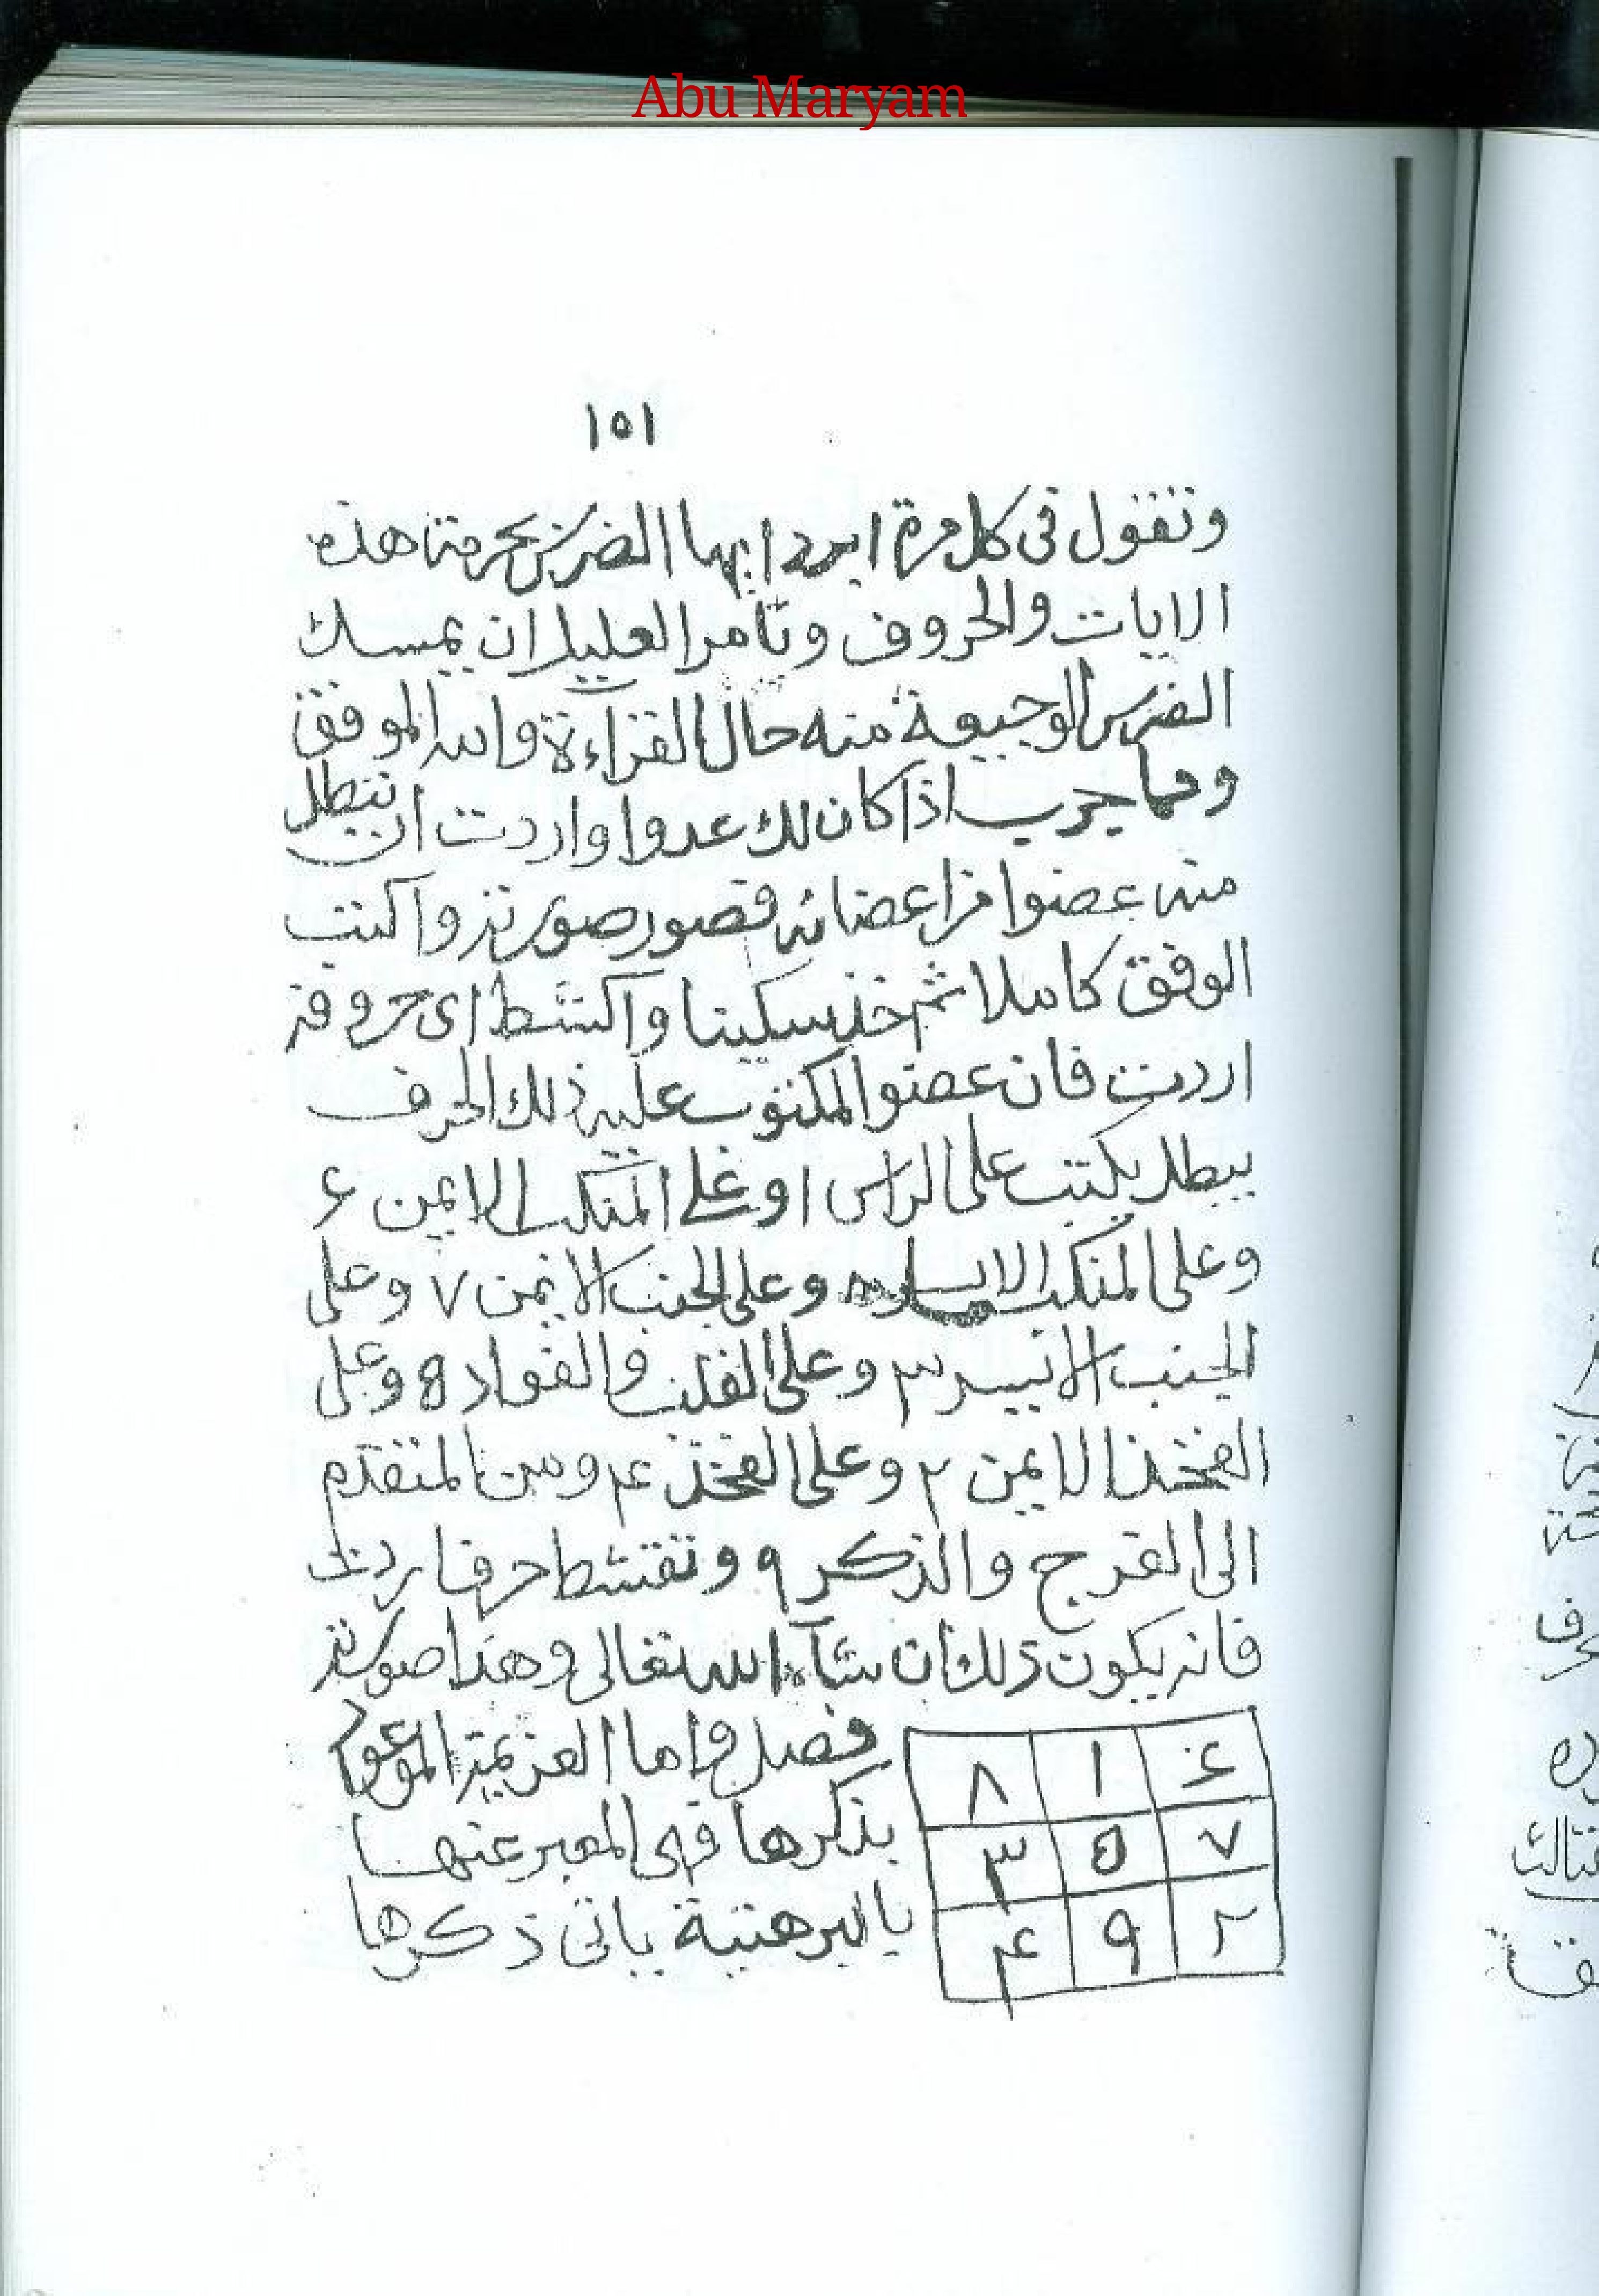 Abu Maryam
١٥١
وتقول فى كل مرة ابرد ايها الضرس بحرمة هذه
الايات والحروف وتأمر العليل ان يمسك
الضرس الوجيعة منه حال القراءة والله الموفق
ومما جرب اذا كان لك عدوا واردت ان تبطل
منه عضوا من اعضائه فصور صورته واكتب
الوفق كاملا ثم خذ سكينا واكشط اى حروفه
اردت فان عضو المكتوب عليه ذلك الحرف
يبطل يكتب على الراس ا وعلى المنكب الايمن ۶
وعلى المنكب الايسر ٨ وعلى الجنب الايمن ٧ وعلى
الجنب الايسر ٣ وعلى القلب والفواد ٥ وعلى
الفخذ الايمن ٢ وعلى الفخذ ۴ ومن المتقدم
الى الفرج والذكر ٩ وتقشط حرفا ردت
فانه يكون ذلك ان شآء الله تعالى وهذا صورته
فصل واما العزيمة الموعود
بذكرها فهى المعبر عنها
بالبرهتية ياتى ذكرها
۶ ١ ٨
٧ ٥ ٣
٢ ٩ ۴